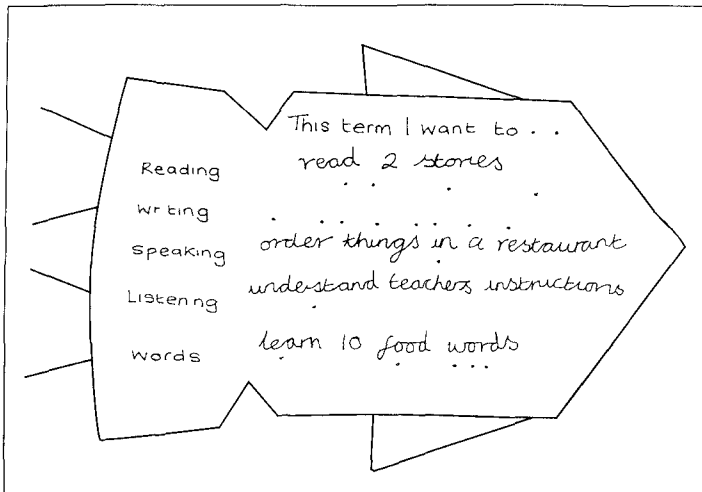 This term I want to . . .
Reading read 2 stories
Writing
Speaking order things in a restaurant
Listening understand teachers instructions
Words learn 10 food words